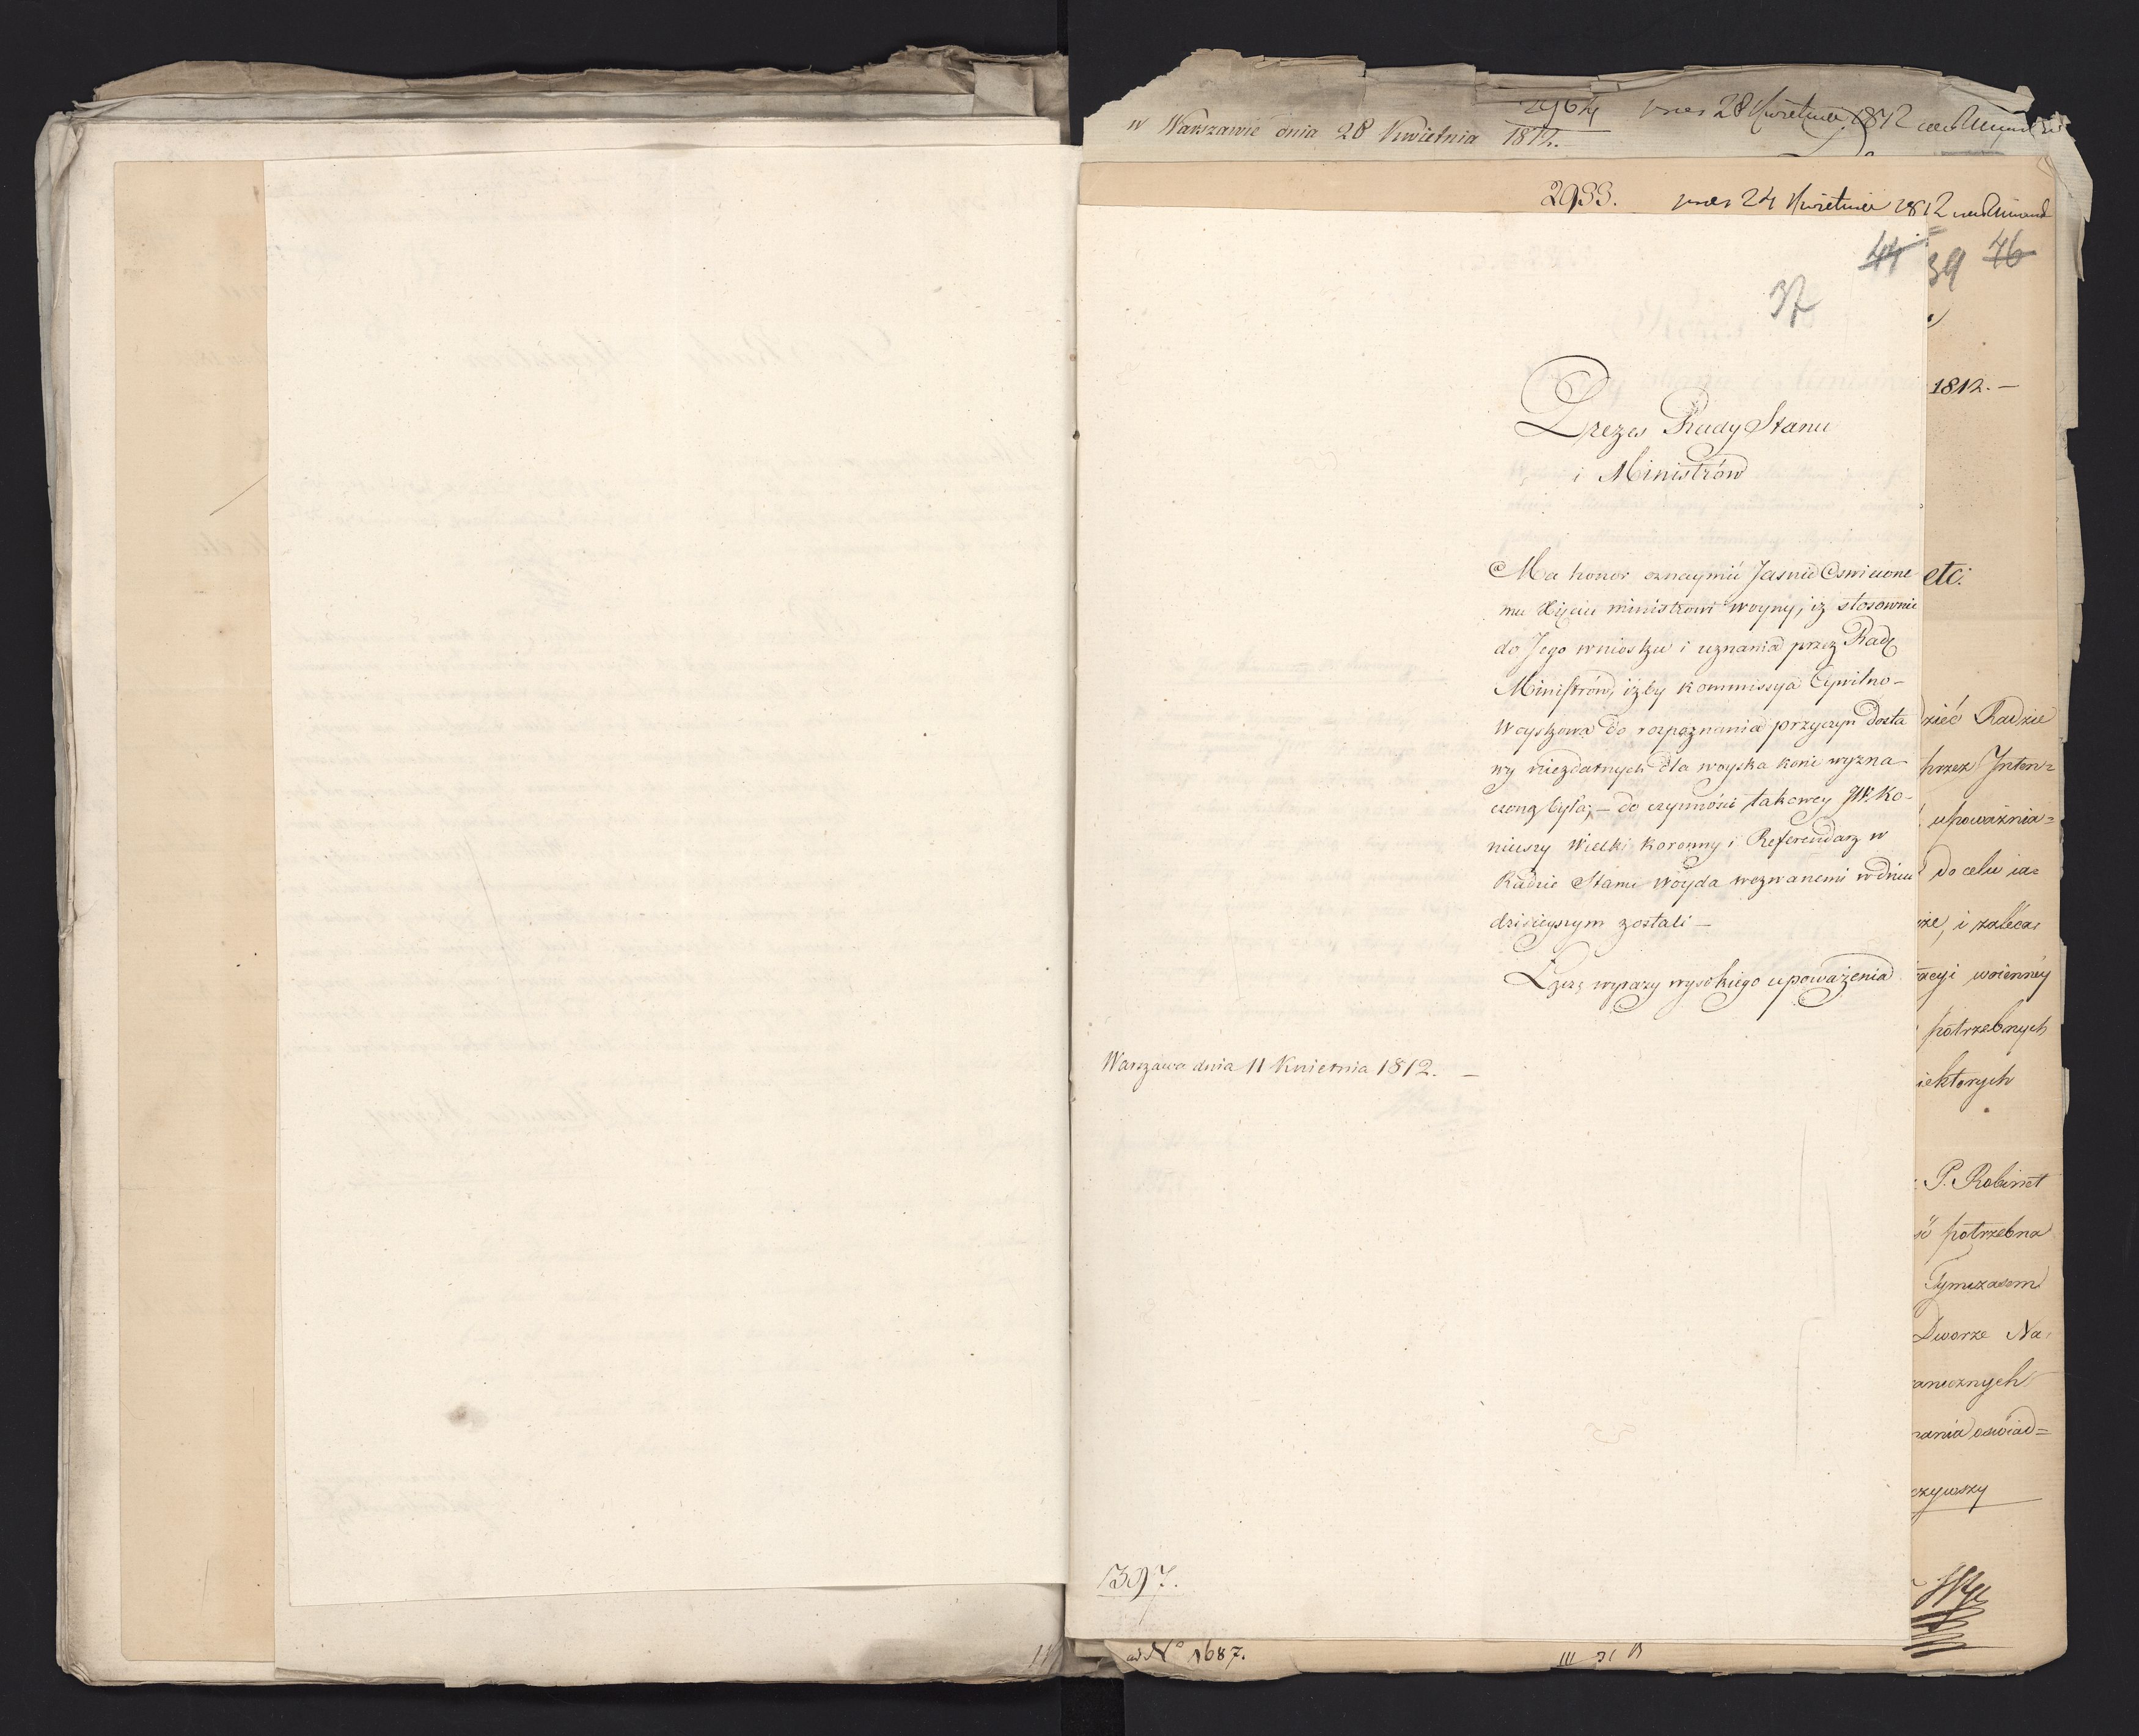 2964 28 Kwietnia 1812
w Warszawie dnia 28 Kwietnia 1812.
2933. 24 Kwietnia 1812
44 39 46
37
Prezes Rady Stanu
i Ministrów
1812. —
Ma honor oznaymić Jasnie Oswiecone
mu Xięciu ministrowi woyny, iż stosownie
do Jego wniosku i uznania przez Radę
Ministrów, iżby kommissya Cywilno-
Woyskowa do rozpoznania przyczyn dosta
wy niezdatnych dla woyska koni wyzna
czoną była; — do czynności takowey JW. Ko-
niuszy Wielki Koronny i Referendarz w
Radzie Stanu Woyda wezwanemi w dniu
dzisieyszym zostali —
Łączę wyrazy wysokiego upoważenia
Warszawa dnia 11 Kwietnia 1812. —
1397.
etc:
dzieć Radzie
przez Inten=
upoważnia=
do celu ia=
że, i zaleca=
racyi woienney
potrzebnych
iektorych
P. Robinet
ść potrzebna
Tymczasem
Dworze Na=
anicznych
nania oświad=
czywszy
ad No 1687.